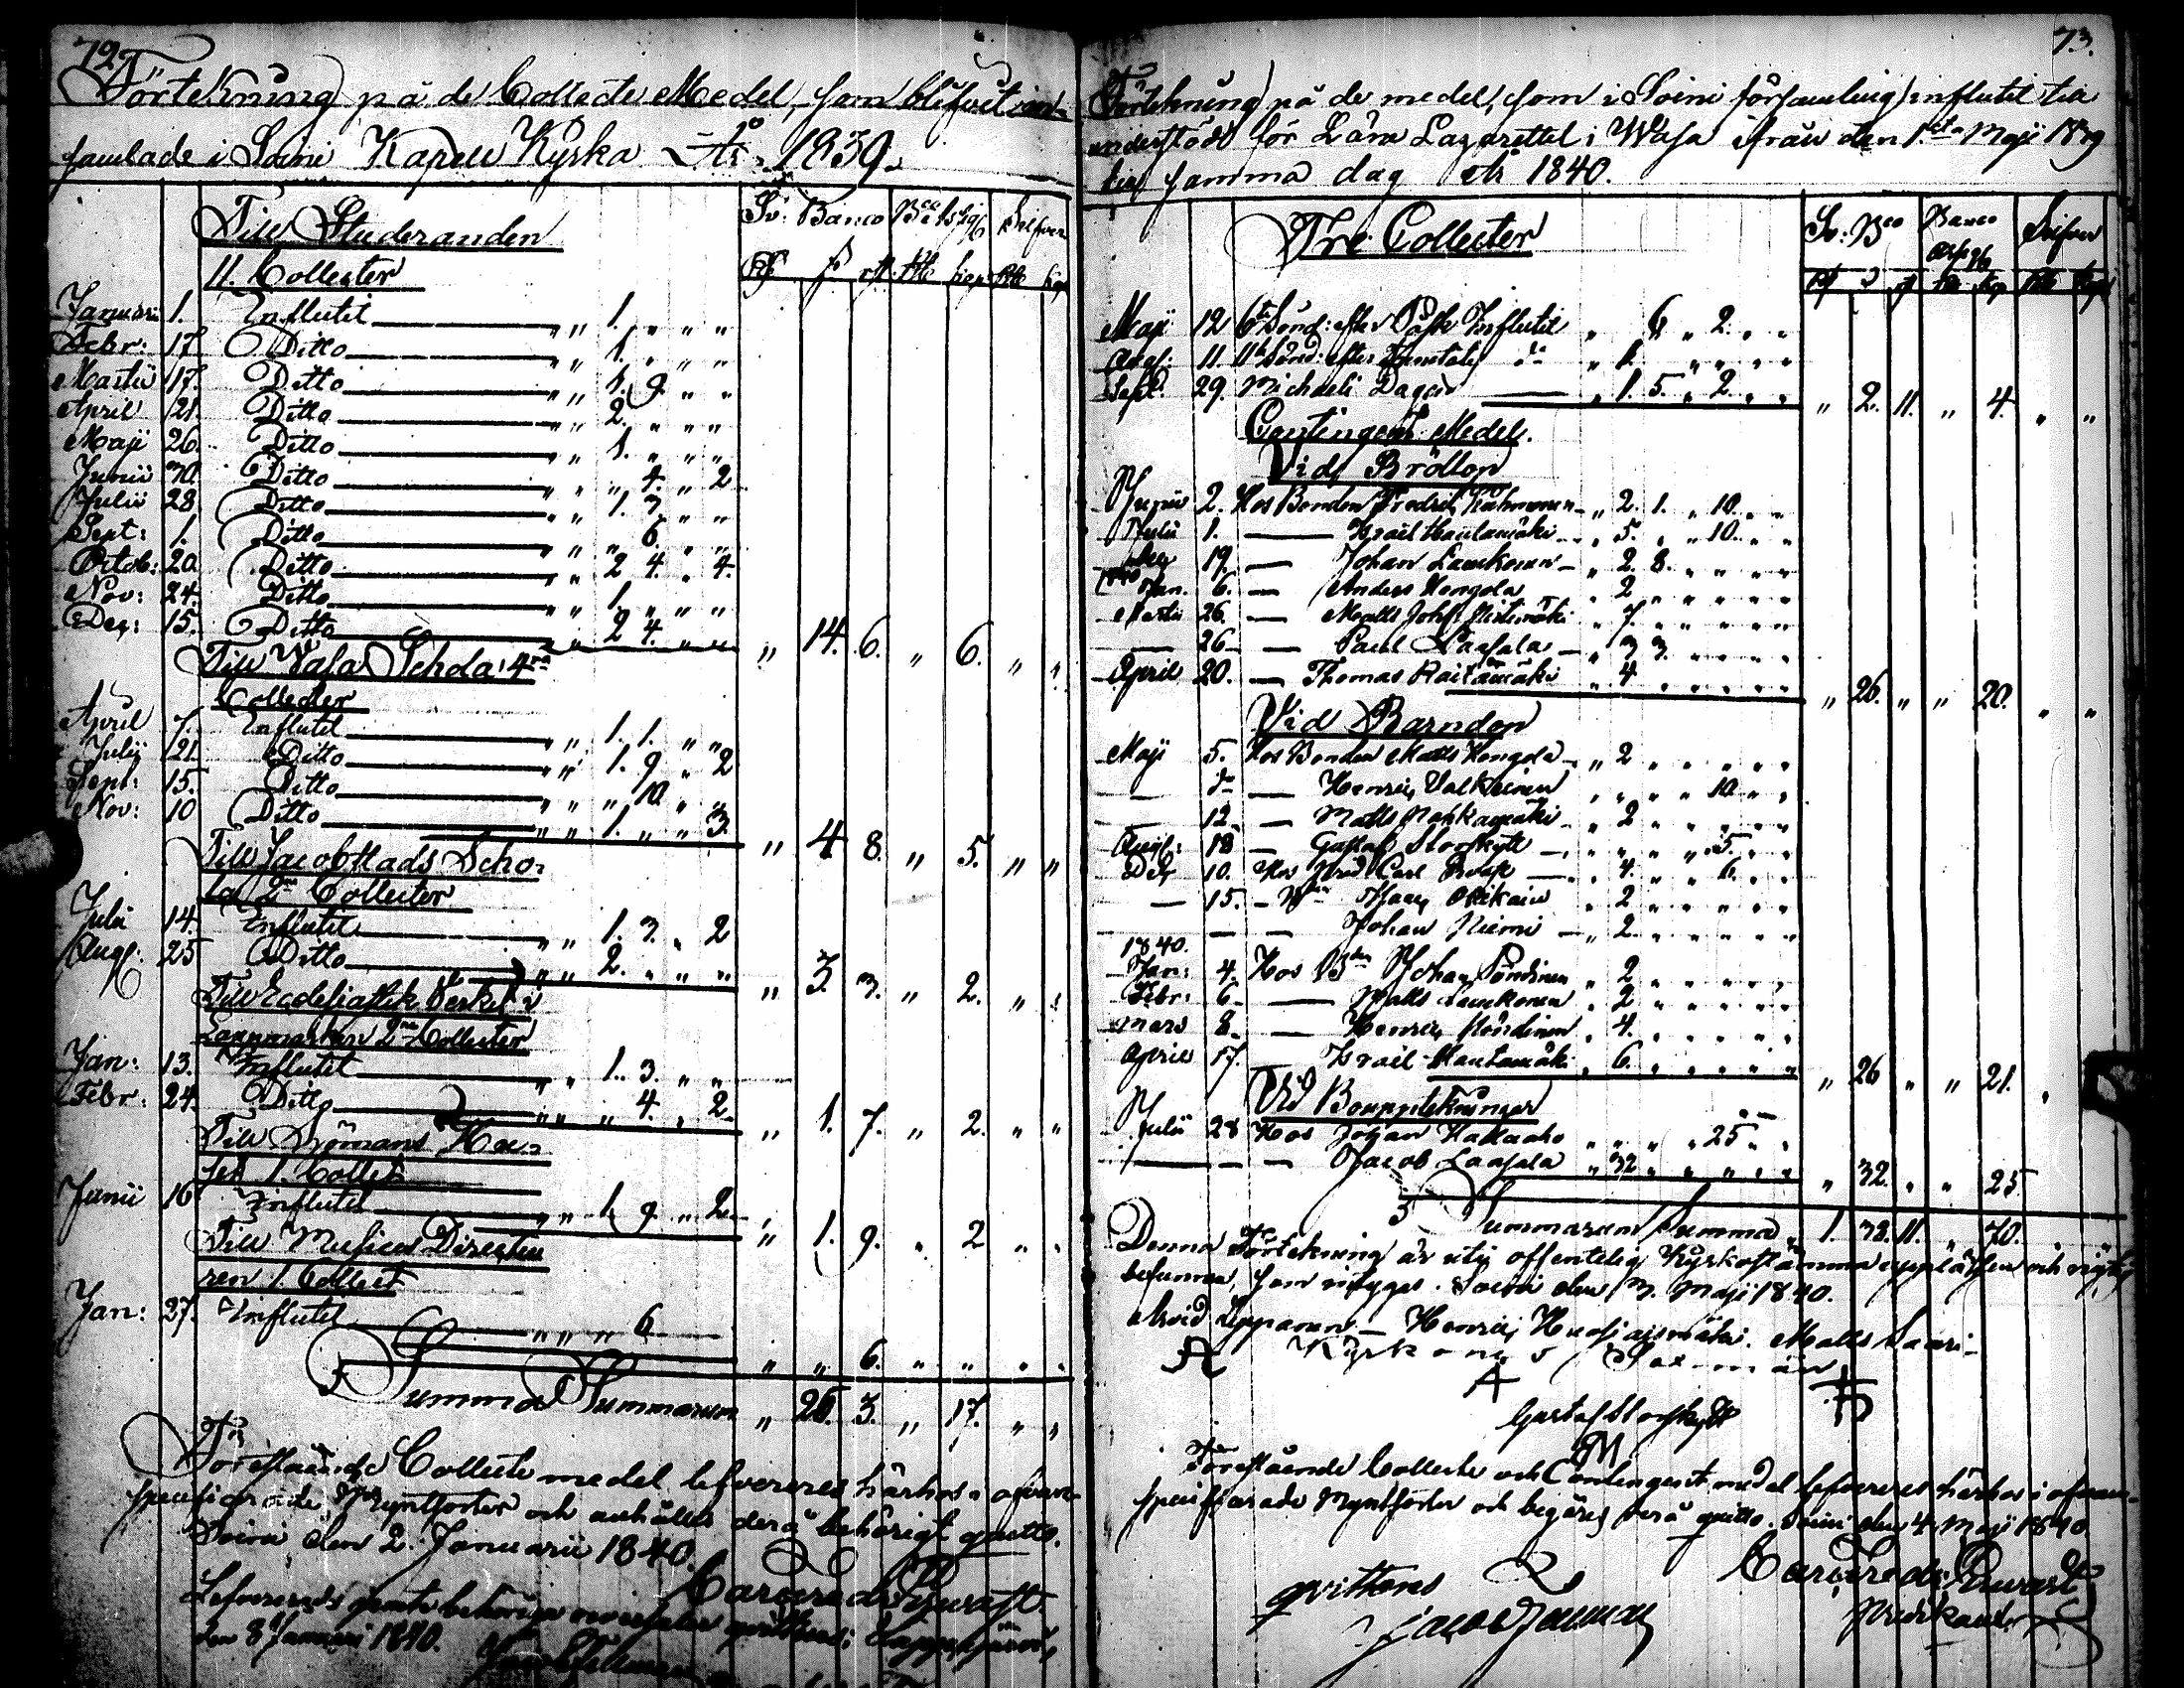 72.
Förtekning på de Collecte Medel, som blifvit in-
samlade i Soini Kapell Kyrka År 1839.
Sv: Banco Bco Silfver
Till Studeranden
11. Collecter
Januarii 1. Influtit „ „ 1. „ „ „
Febr: 17 Ditto „ „ 1. „ „ „
Martii 17. Ditto „ „ 1. 9. „ „
April 21. Ditto „ „ 2. „ „ „
Maji 26. Ditto „ „ 1. „ „ „
Junii 30. Ditto „ „ „ 4. „ 2
Julii 28 Ditto „ „ 1. 3. „ „
Sept: 1. Ditto „ „ „ 6. „ „
Octob: 20 Ditto „ „ 2 4. „ 4.
Nov: 24. Ditto „ „ 1. „ „ „
Dec: 15. Ditto „ „ 2 4. „ „ „ 14. 6. „ 6. „ „
Till Wasa Schola 4ra
Collecter
April 7. Influtit „ „ 1. 1. „ „
Julij 21. Ditto „ „ 1. 9. „ 2
Sept: 15. Ditto „ „ „ 10. „ „
Nov: 10 Ditto „ „ 1. „ „ 3. „ 4 8. „ 5. „ „
Till Jacobstads Scho-
la 2ne Collecter
Julii 14. Influtit „ „ 1. 3. „ 2
Aug: 25 Ditto „ „ 2. „ „ „ „ 3. 3. „ 2. „ „
Till Ecclesiastik Verket i
Lappmarken 2ne Collecter
Jan: 13. Influtit „ „ 1. 3. „ „
Febr: 24. Ditto „ „ „ 4. „ 2. „ 1. 7. „ 2. „ „
Till Sjömans Hu-
set 1. Collect
Junii 16 Influtit „ „ 1. 9. „ 2. „ 1. 9. „ 2 „ „
Till Musices Directeu
ren 1. Collect
Jan: 27. Influtit „ „ „ 6 „ „ 6. „ „ „ „
Summa Summarum „ 26. 3. „ 17. „ „
Förestående Collecte medel lefvereres härhos i ofvan-
specificerade Myntsorter och anhålles derå behörigt quitto.
Soini den 2. Januarii 1840.
den 8 Januarii 1840.
73.
Förtekning på de medel, som i Soini församling influtit till
understöd för Läns Lazarettet i Wasa ifrån den 1sta Maji 1839
till samma dag år 1840.
Tre Collecter
Sv: Bco Banco Silfver
Maji 12 6te Sönd: efter Påsk Influtit „ 6 „ 2. „ „
Aug: 11. 11te Sönd: efter do „ 1. „ „ „ „
Sept: 29. Michaeli Dagen „ 1. 5. „ 2. „ „ „ 2. 11. „ 4. „ „
Contingent Medel.
Vid Bröllop
Junii 2. Hos Bonden Fredric „ 2. 1. „ 10. „ „
Julii 1. Israel Hautamäki „ 5. „ „ 10. „ „
19. Johan Laukonen „ 2. 8. „ „ „ „
1840 Jan. 6. Anders Hengola „ 2 „ „ „ „ „
Martii 26. Matts Johss „ 7. „ „ „ „ „
26 Paul Laasala „ 3 3. „ „ „ „
April 20. Thomas Raitamäki „ 4 „ „ „ „ „ „ 26. „ „ 20. „ „
Vid Barndop
Maji 5. Hos Bonden Matts Hengola „ 2 „ „ „ „ „
do Henric „ „ „ „ 10 „ „
12. Matts „ 2 „ „ „ „ „
Aug: 18 Gustaf Storskytt „ „ „ „ 5. „ „
Dec 10. Hos Carl „ 4. „ „ 6. „ „
15. „ 2 „ „ „ „ „
Johan Niemi „ 2 „ „ „ „ „
1840.
Jan: 4. Hos Johan „ 2 „ „ „ „ „
Febr: 6. Matts Laukonen „ 2 „ „ „ „ „
Mars 8. Henric „ 4. „ „ „ „ „
April 17. Israel Hautamäki „ 6. „ „ „ „ „ „ 26 „ „ 21. „
Vid Boupptekningar
Julii 28 Hos Johan Hakaaho „ „ „ „ 25 „ „
Jacob Laasala „ 32 „ „ „ „ „ „ 32. „ „ 25.
Summarum Summa „ 1. 38. 11. „ 70.
Denna Förtekning är uti offentelig Kyrkostämma uppläsen och rigtig
befunnen, som intygges. Soini den 3. Maji 1840.
Arvid Henric Matts Saari
Kyrkones Sex-män
Gustaf Storskytt
Förestående Collecte och Contingent medel lefvereres härhos i ofvan-
specificerade Myntsorter och begäres derå quitto. Soini den 4. Maji 1840
qvitteras